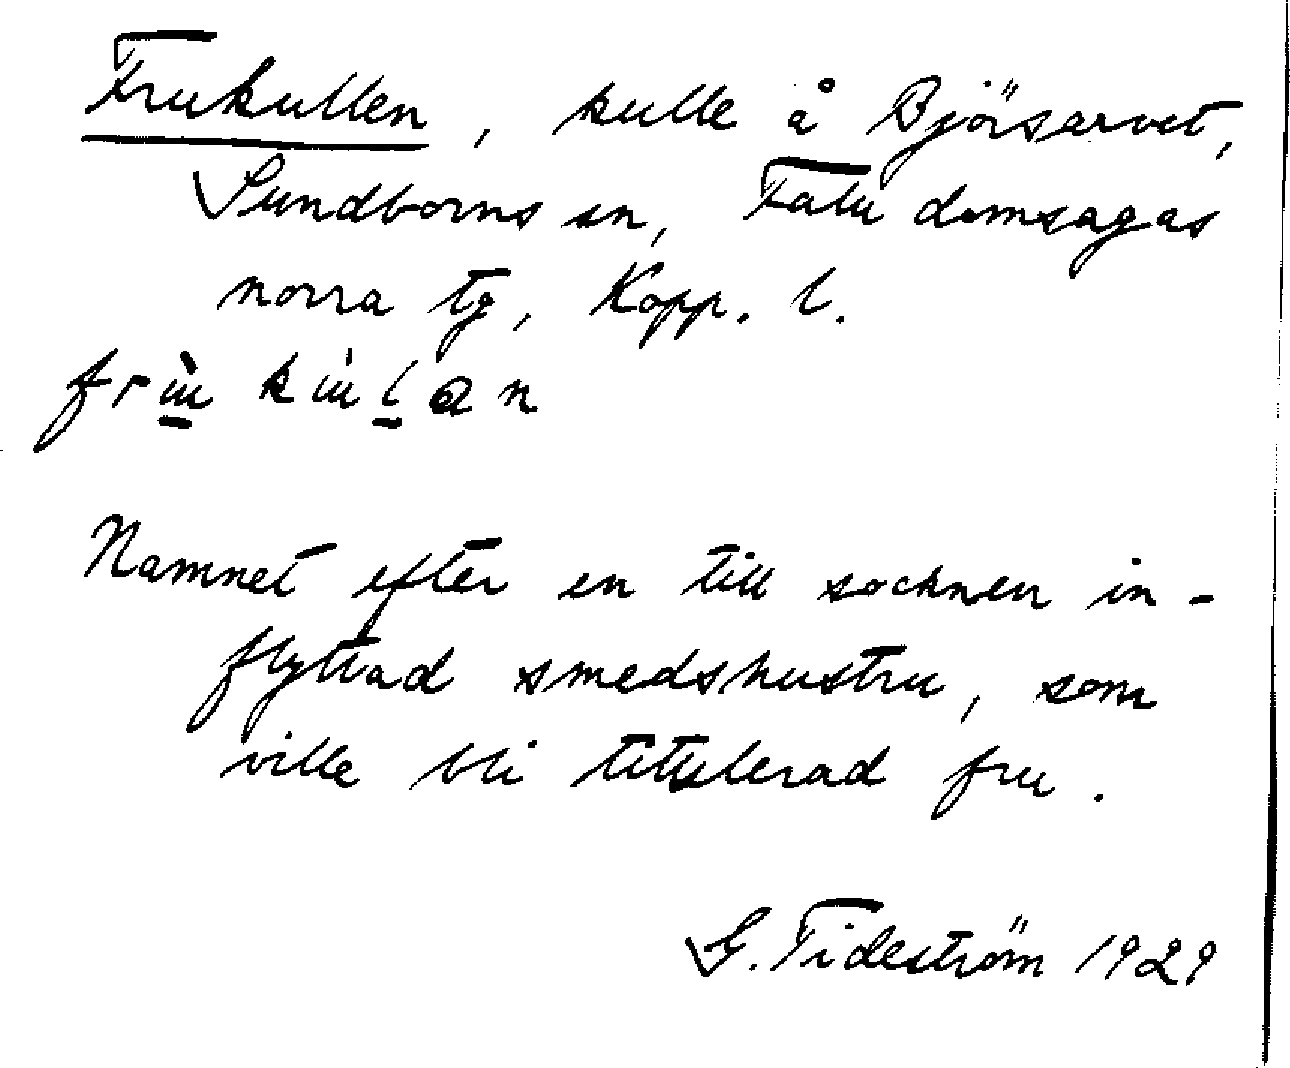 Frukullen, kulle å Björsarvet,
Sundborns sn, Falu domsagas
norra tg, Kopp. l.
Namnet efter en till socknen in-
flyttad smedshustru, som
ville bli titulerad fru.
G. Tideström 1929